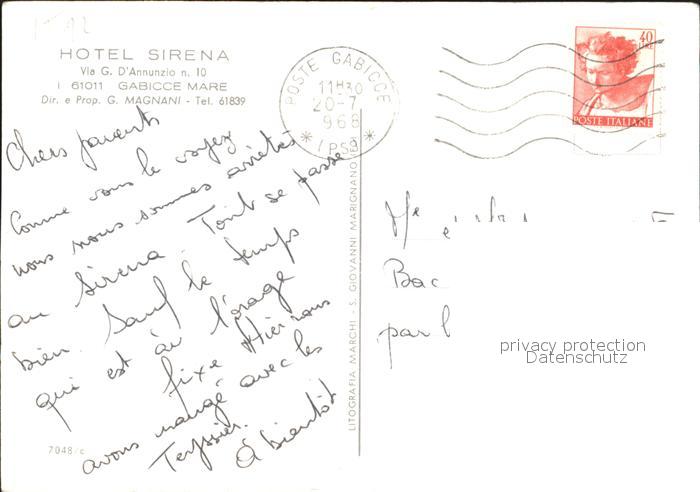 HOTEL SIRENA
Via G. D'Annunzio n. 10
I 61011 GABICCE MARE
Dir. e Prop. G. MAGNANI - Tel. 61839
POSTE GABICCE
11H30
20-7
968
(PS)
40
POSTE ITALIANE
Chers parents
Comme vous le voyez
nous nous sommes arrêtés
au Sirena. Tout se passe
bien. Sauf le temps
qui est à l'orage
fixe Hier nous
avons mangé avec les
Teyssier.
A bientôt
7048/c
LITOGRAFIA MARCHI - S. GIOVANNI MARIGNANO
Me
Bac
par l
privacy protection
Datenschutz